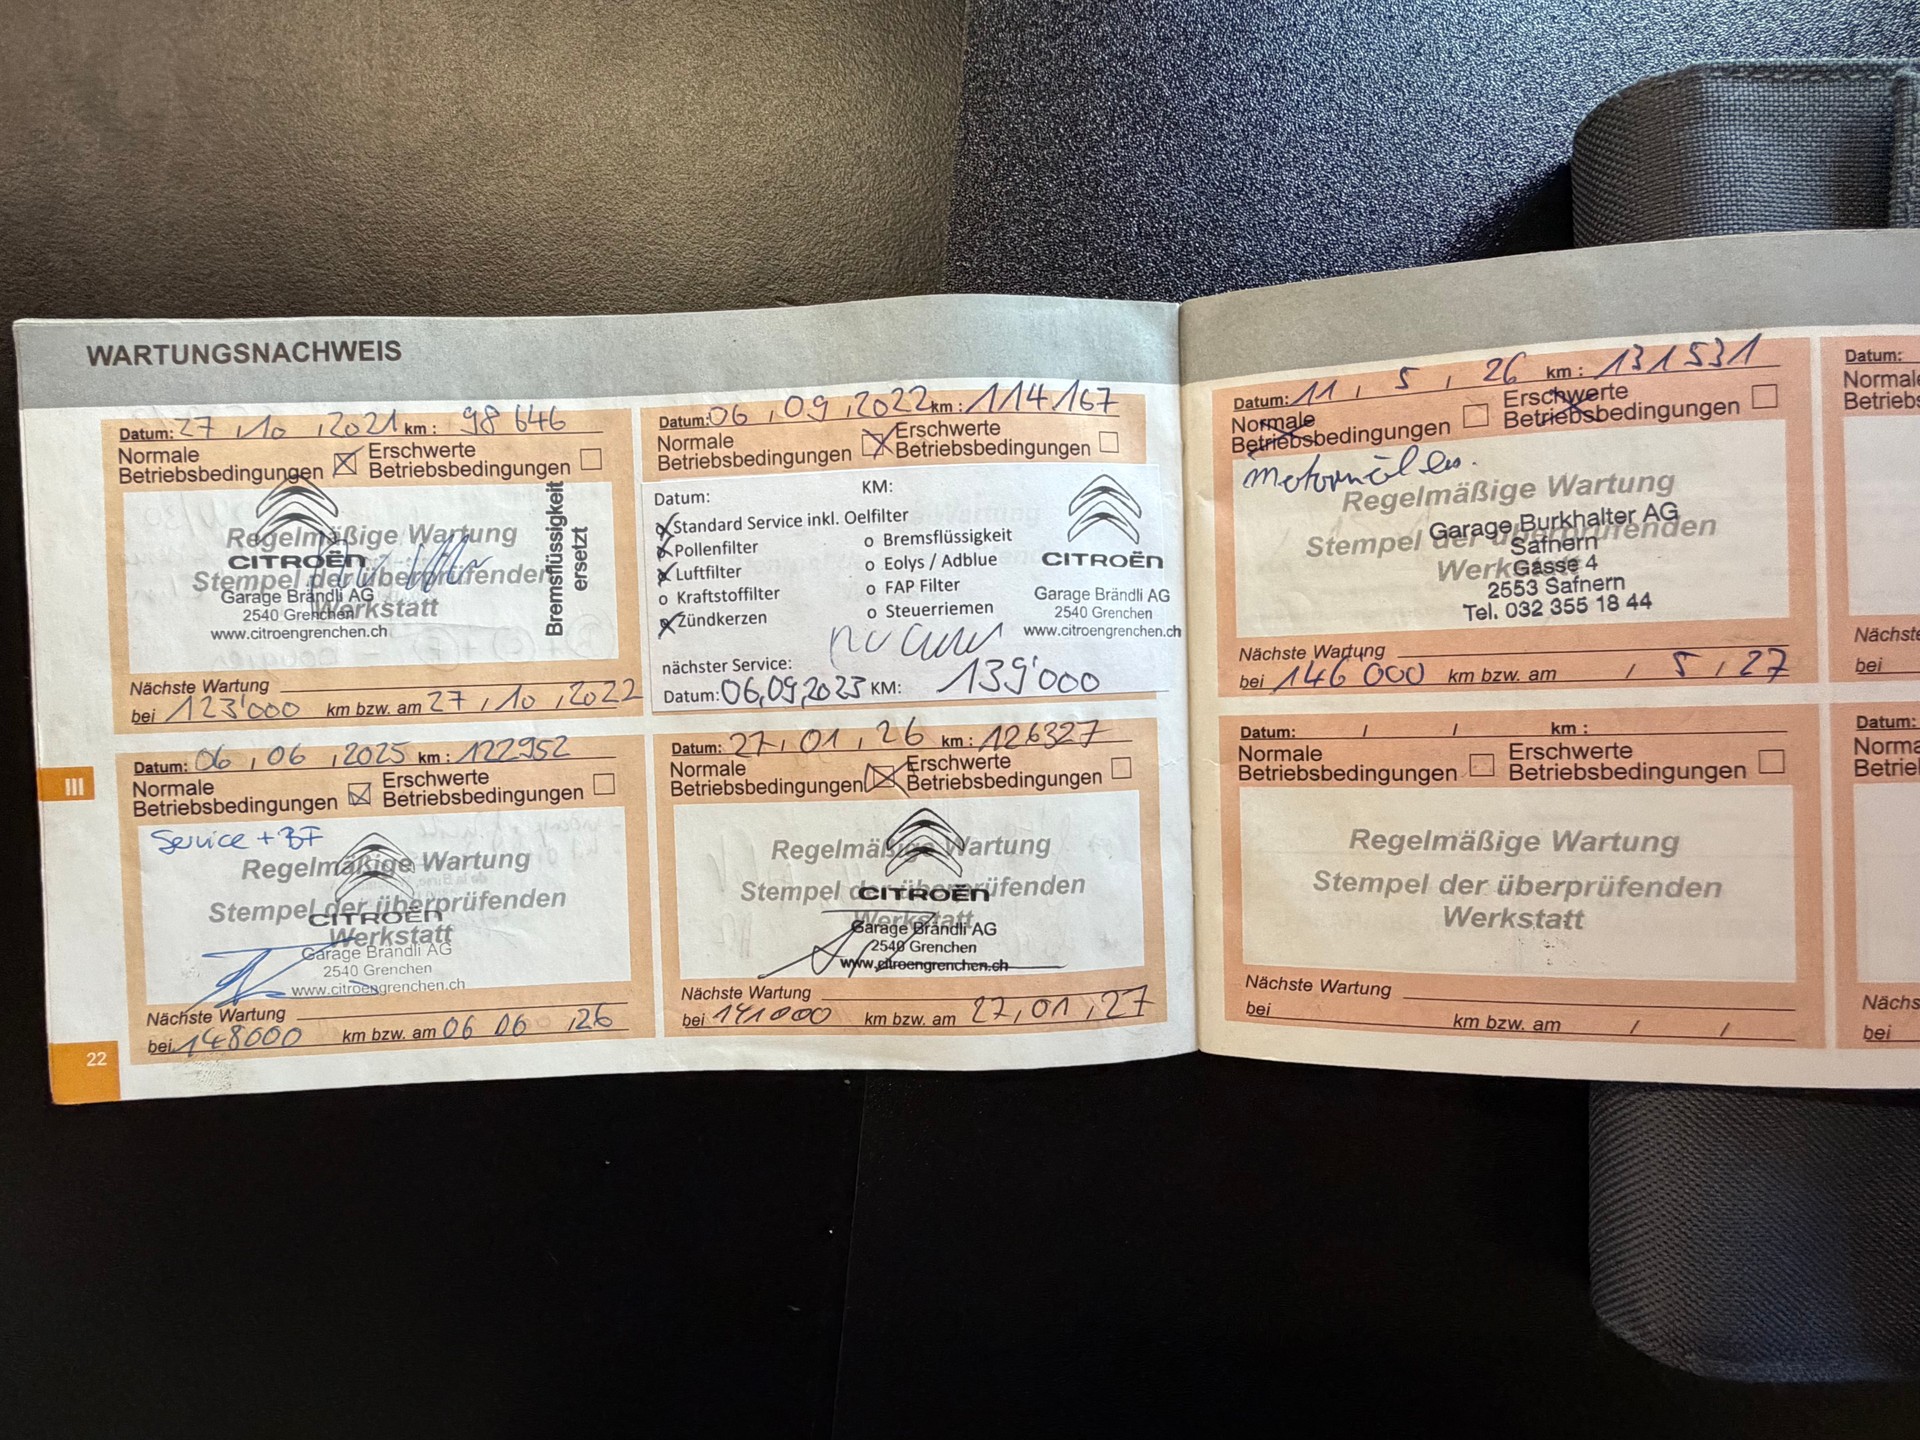 WARTUNGSNACHWEIS
Datum: 27 , 10 , 2021 km : 98 646
Normale
Betriebsbedingungen
Erschwerte
Betriebsbedingungen
Regelmäßige Wartung
CITROËN
Stempel der überprüfenden
Werkstatt
Garage Brändli AG
2540 Grenchen
www.citroengrenchen.ch
Bremsflüssigkeit
ersetzt
Nächste Wartung
bei 123'000 km bzw. am 27 , 10 , 2022
Datum: 06 , 09 , 2022 km : 114 167
Normale
Betriebsbedingungen
Erschwerte
Betriebsbedingungen
Datum: KM:
Standard Service inkl. Oelfilter
Pollenfilter
Luftfilter
o Kraftstoffilter
Zündkerzen
o Bremsflüssigkeit
o Eolys / Adblue
o FAP Filter
o Steuerriemen
CITROËN
Garage Brändli AG
2540 Grenchen
www.citroengrenchen.ch
nächster Service:
Datum: 06,09,2023 KM: 139'000
III
Datum: 06 , 06 , 2025 km : 122952
Normale
Betriebsbedingungen
Erschwerte
Betriebsbedingungen
Service + BF
Regelmäßige Wartung
Stempel der überprüfenden
CITROËN
Werkstatt
Garage Brändli AG
2540 Grenchen
www.citroengrenchen.ch
Nächste Wartung
bei 148000 km bzw. am 06 06 , 26
Datum: 27 , 01 , 26 km : 126327
Normale
Betriebsbedingungen
Erschwerte
Betriebsbedingungen
Regelmäßige Wartung
Stempel der überprüfenden
CITROËN
Werkstatt
Garage Brändli AG
2540 Grenchen
www.citroengrenchen.ch
Nächste Wartung
bei 141000 km bzw. am 27 , 01 , 27
22
Datum: 11 , 5 , 26 km : 131531
Normale
Betriebsbedingungen
Erschwerte
Betriebsbedingungen
Regelmäßige Wartung
Stempel der überprüfenden
Werkstatt
Garage Burkhalter AG
Safnern
Gasse 4
2553 Safnern
Tel. 032 355 18 44
Nächste Wartung
bei 146'000 km bzw. am / 5 , 27
Datum: / / km :
Normale
Betriebsbedingungen
Erschwerte
Betriebsbedingungen
Regelmäßige Wartung
Stempel der überprüfenden
Werkstatt
Nächste Wartung
bei km bzw. am / /
Datum:
bei
Datum:
bei